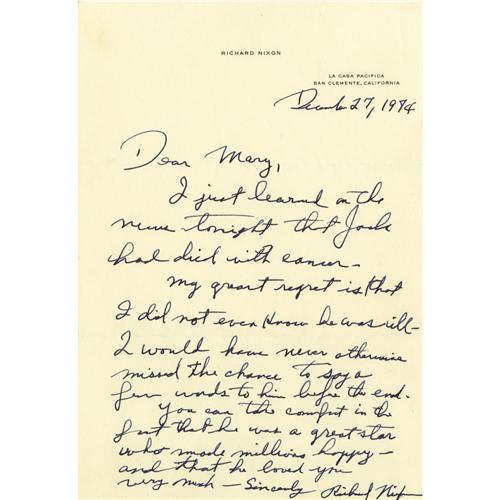 RICHARD NIXON
LA CASA PACIFICA
SAN CLEMENTE, CALIFORNIA
December 27, 1974
Dear Mary,
I just learned on the
news tonight that Jack
had died with cancer -
My great regret is that
I did not even know he was ill -
I would have never otherwise
missed the chance to say a
few words to him before the end.
You can take comfort in the
fact that he was a great star
who made millions happy -
and that he loved you
very much - Sincerely Richard Nixon